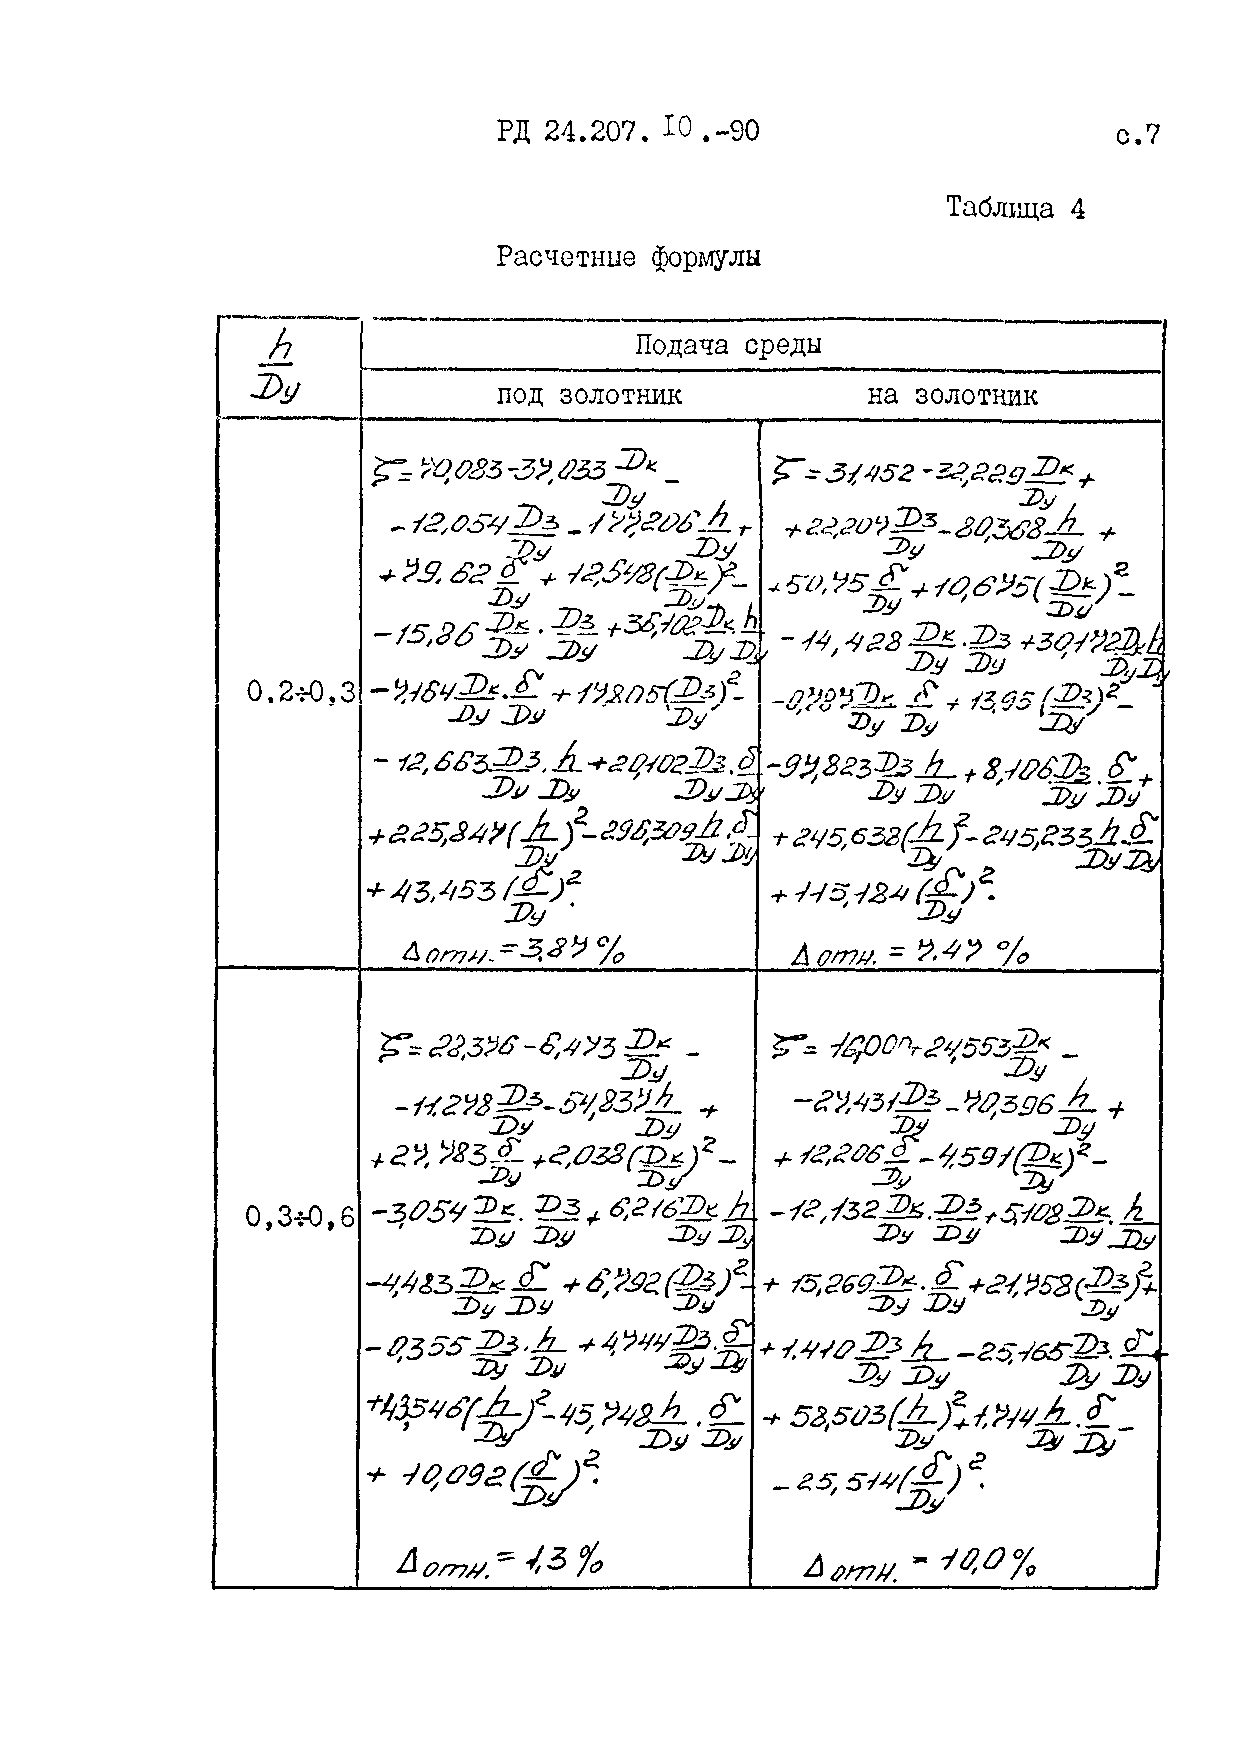 РД 24.207. 10.-90 с.7
Таблица 4
Расчетные формулы
h/Dy
Подача среды
под золотник на золотник
0,2÷0,3
ζ = 70,083 - 37,033 Dк/Dy -
- 12,054 Dз/Dy - 177,206 h/Dy +
+ 79,62 δ/Dy + 12,578 (Dк/Dy)² -
- 15,86 Dк/Dy · Dз/Dy + 36,102 Dк/Dy h/Dy
- 7,164 Dк/Dy · δ/Dy + 17,805 (Dз/Dy)² -
- 12,663 Dз/Dy · h/Dy + 20,102 Dз/Dy · δ/Dy
+ 225,847 (h/Dy)² - 296,309 h/Dy · δ/Dy
+ 43,453 (δ/Dy)².
Δ отн. = 3,87 %
ζ = 31,452 - 32,229 Dк/Dy +
+ 22,207 Dз/Dy - 80,368 h/Dy +
+ 50,75 δ/Dy + 10,675 (Dк/Dy)² -
- 14,428 Dк/Dy · Dз/Dy + 30,172 Dк/Dy h/Dy
- 0,787 Dк/Dy δ/Dy + 13,95 (Dз/Dy)² -
- 97,823 Dз/Dy h/Dy + 8,106 Dз/Dy · δ/Dy +
+ 245,638 (h/Dy)² - 245,233 h/Dy · δ/Dy
+ 115,184 (δ/Dy)².
Δ отн. = 7.47 %
0,3÷0,6
ζ = 28,376 - 6,473 Dк/Dy -
- 11.278 Dз/Dy - 54,837 h/Dy +
+ 27,783 δ/Dy + 2,038 (Dк/Dy)² -
- 3,054 Dк/Dy · Dз/Dy + 6,216 Dк/Dy h/Dy
- 4,483 Dк/Dy δ/Dy + 6,792 (Dз/Dy)² -
- 0,355 Dз/Dy · h/Dy + 4,744 Dз/Dy · δ/Dy
+ 43,546 (h/Dy)² - 45,748 h/Dy · δ/Dy
+ 10,092 (δ/Dy)².
Δ отн. = 1,3 %
ζ = 24,553 Dк/Dy -
- 27,431 Dз/Dy - 70,396 h/Dy +
+ 12,206 δ/Dy - 4,591 (Dк/Dy)² -
- 12,132 Dк/Dy · Dз/Dy + 5,108 Dк/Dy · h/Dy
+ 15,269 Dк/Dy · δ/Dy + 21,758 (Dз/Dy)² +
+ 1,410 Dз/Dy h/Dy - 25,165 Dз/Dy · δ/Dy +
+ 58,503 (h/Dy)² + 1,714 h/Dy · δ/Dy -
- 25,514 (δ/Dy)².
Δ отн. = 10,0 %